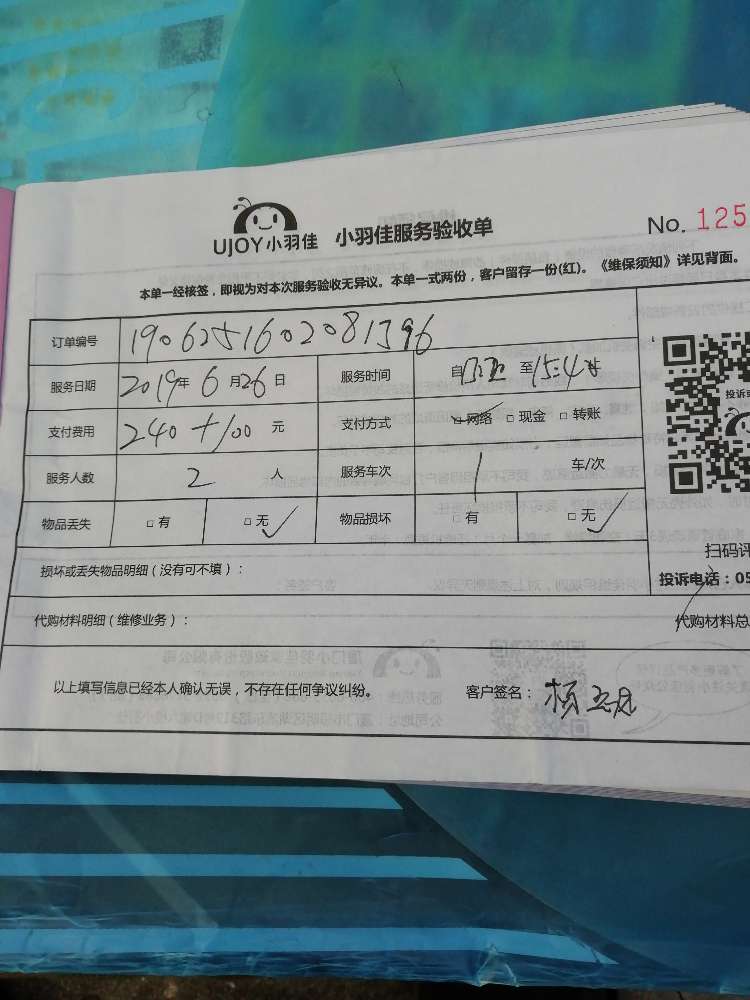 UJOY小羽佳 小羽佳服务验收单 No. 125
本单一经核签，即视为对本次服务验收无异议。本单一式两份，客户留存一份(红)。《维保须知》详见背面。
订单编号 1906251602081396
服务日期 2019年6月26日 服务时间 自 至15:4
支付费用 240+100元 支付方式 □网络 □现金 □转账
服务人数 2人 服务车次 1 车/次
物品丢失 □有 □无✓ 物品损坏 □有 □无✓
投诉或
扫码评
损坏或丢失物品明细（没有可不填）：
投诉电话：05
代购材料明细（维修业务）：
代购材料总
以上填写信息已经本人确认无误，不存在任何争议纠纷。 客户签名：杨